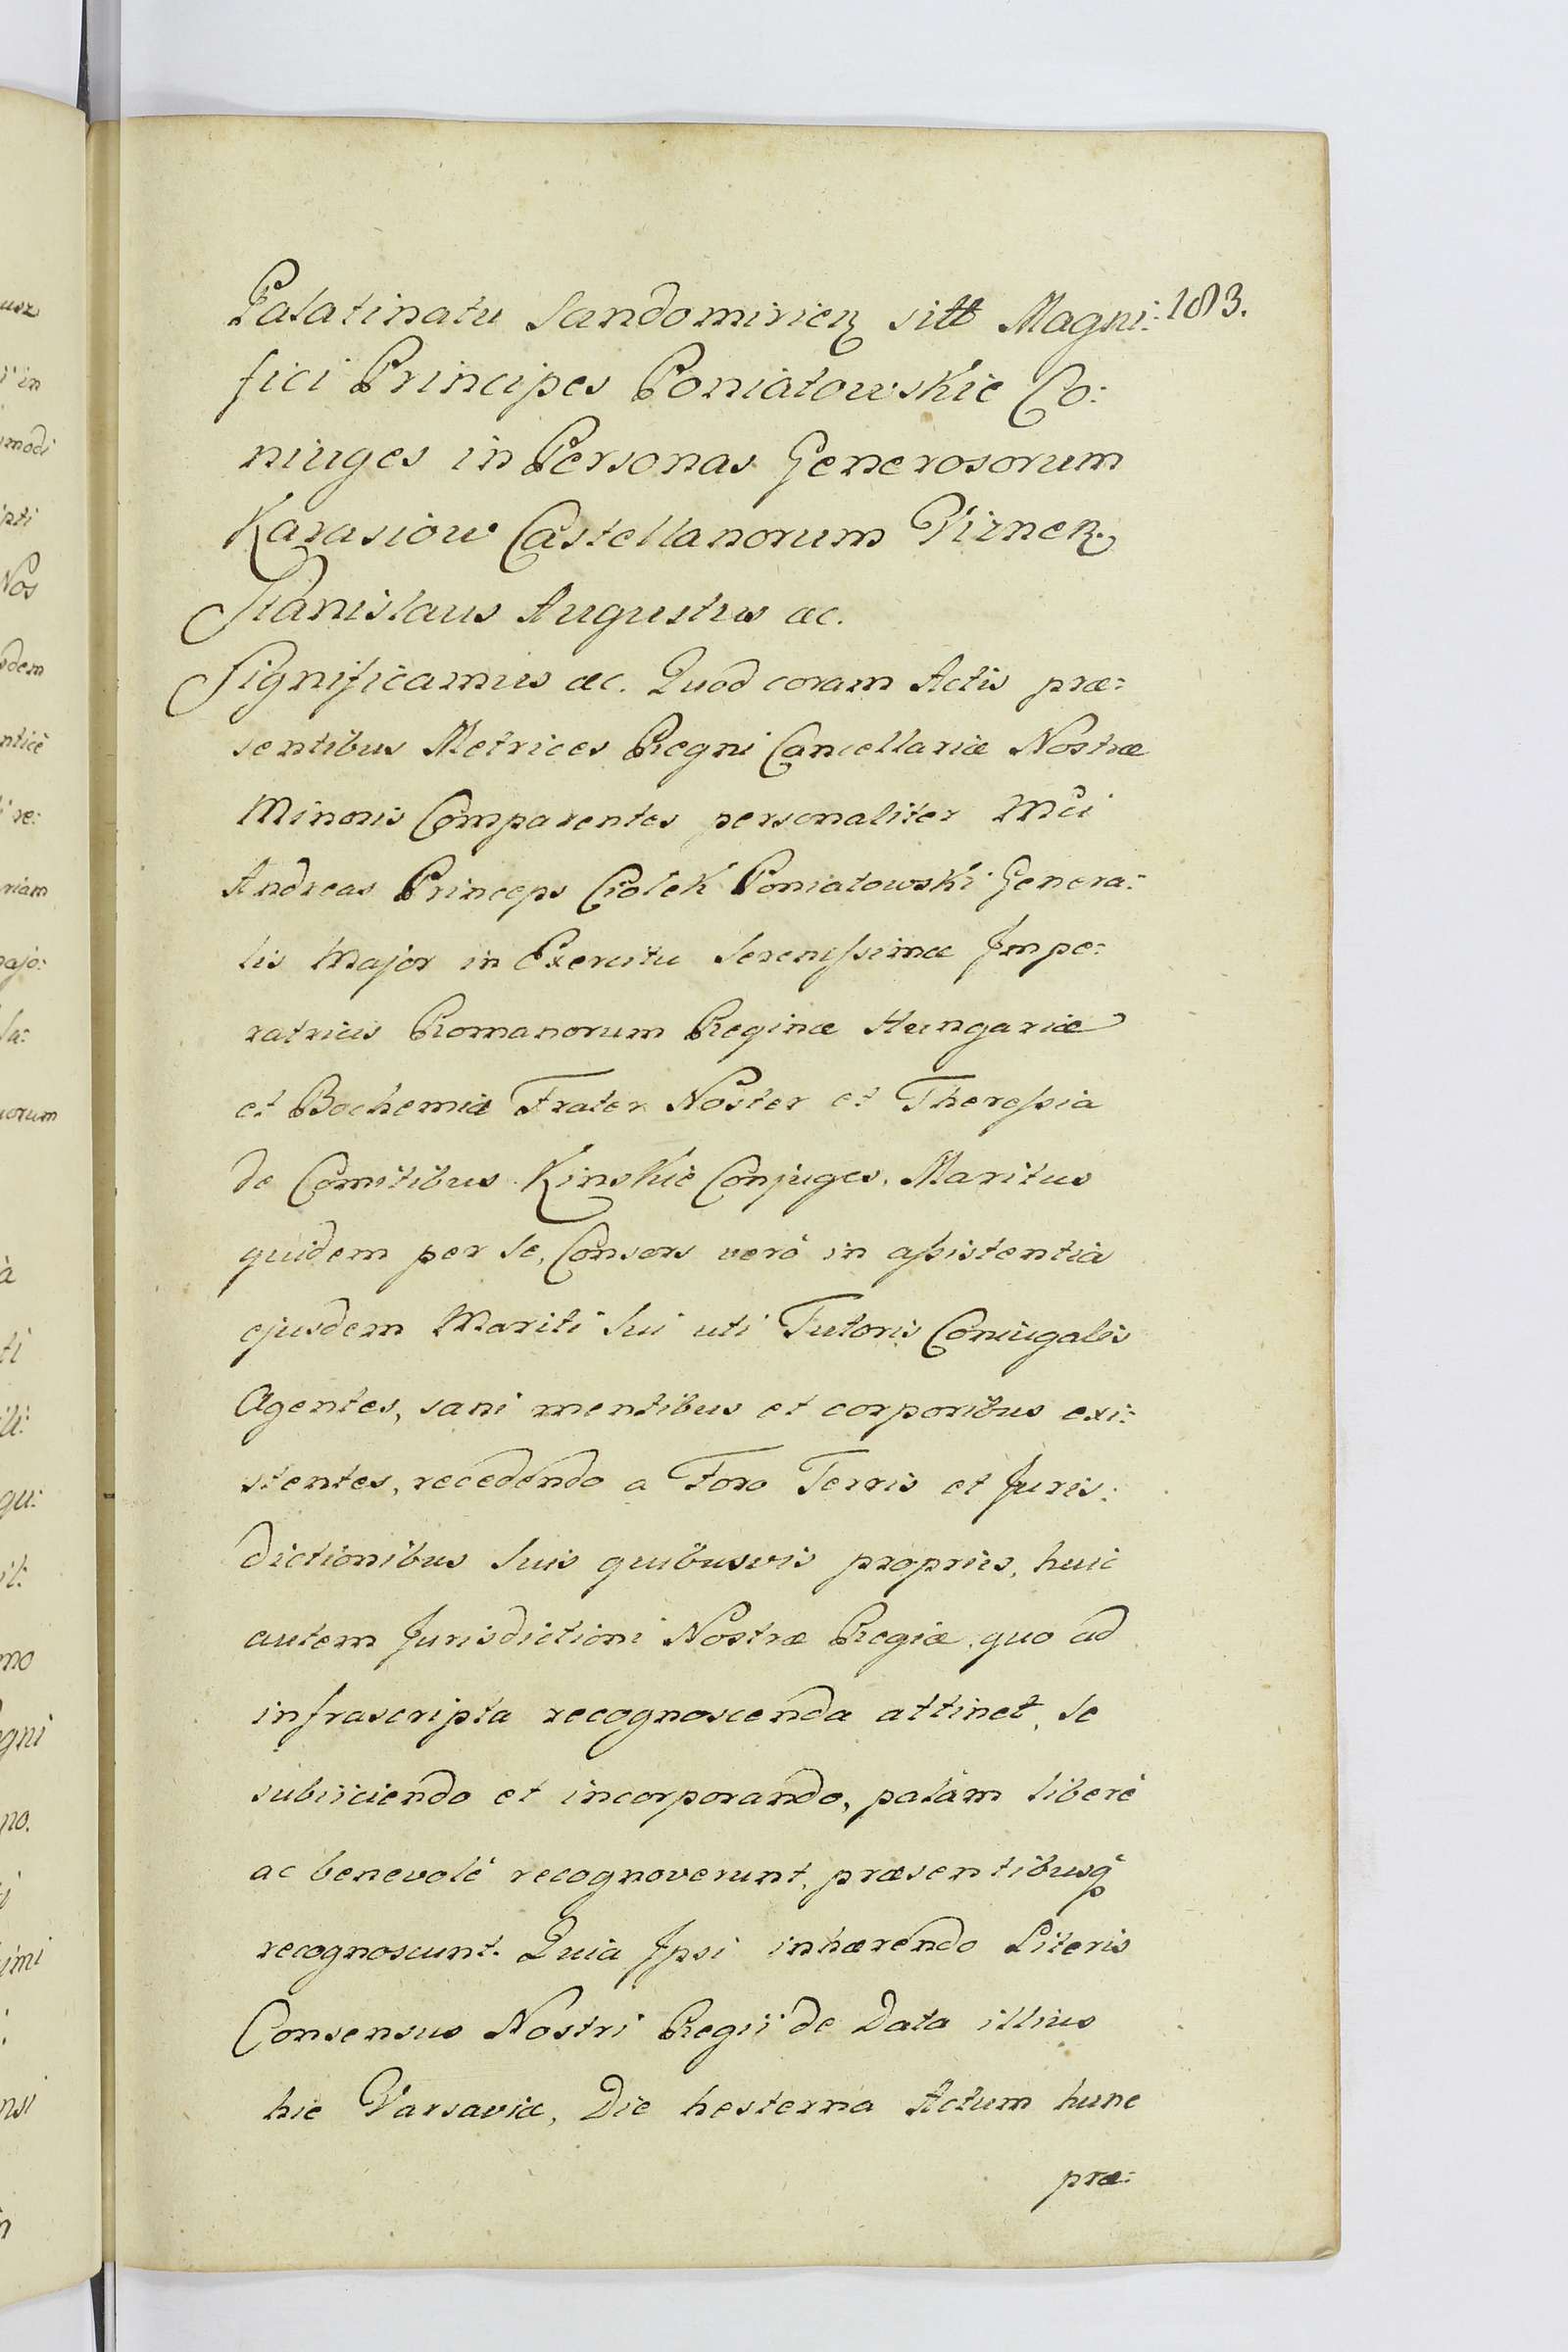 Palatinatu Sandomirien sitt Magni: 183.
fici Principes Poniatowskie Co:
niuges in Personas Generosorum
Karasiow Castellanorum Viznen.
Stanislaus Augustus ac.
Significamus ac. Quod coram Actis præ:
sentibus Metrices Regni Cancellariæ Nostræ
Minoris Comparentes personaliter Mci
Andreas Princeps Ciołek Poniatowski Genera:
lis Major in Exercitu Serenissimæ Impe:
ratricis Romanorum Reginæ Hungariæ
et Bochemiæ Frater Noster et Theressia
de Comitibus Kinskie Conjuges, Maritus
quidem per se, Consors verò in assistentia
ejusdem Mariti Sui uti Tutoris Coniugalis
Agentes, sani mentibus et corporibus exi:
stentes, recedendo a Foro Terris et Juris:
dictionibus Suis quibusvis propriis, huic
autem Jurisdictioni Nostræ Regiæ, quo ad
infrascripta recognoscenda attinet, se
subiiciendo et incorporando, palàm liberè
ac benevolè recognoverunt, præsentibusq̃
recognoscunt. Quia Ipsi inhærendo Literis
Consensus Nostri Regii de Data illius
hic Varsaviæ, Die hesterna Actum hunc
præ:
usz
i in
modi
ipti
Nos
odem
nticè
i re:
riam
majo:
la:
uorum
à
ti
ili:
qu:
il:
mo
gni
no.
imi
nsi